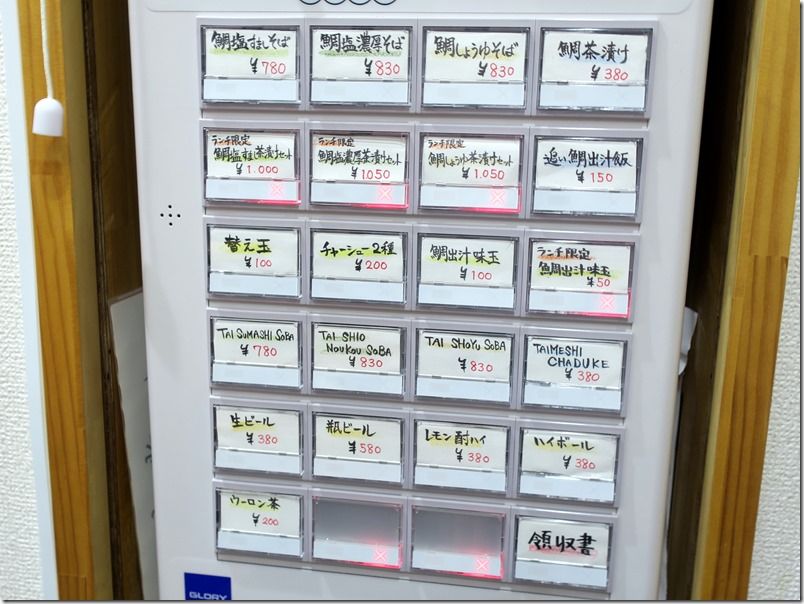 鯛塩すましそば
¥780
鯛塩濃厚そば
¥830
鯛しょうゆそば
¥830
鯛茶漬け
¥380
ランチ限定
鯛塩すまし茶漬けセット
¥1.000
ランチ限定
鯛塩濃厚茶漬けセット
¥1050
ランチ限定
鯛しょうゆ茶漬けセット
¥1.050
追い鯛出汁飯
¥150
替え玉
¥100
チャーシュー2種
¥200
鯛出汁味玉
¥100
ランチ限定
鯛出汁味玉
¥50
TAI SUMASHI SOBA
¥780
TAI SHIO
NOUKOU SOBA
¥830
TAI SHOYU SOBA
¥830
TAIMESHI
CHADUKE
¥380
生ビール
¥380
瓶ビール
¥580
レモン酎ハイ
¥380
ハイボール
¥380
ウーロン茶
¥200
領収書
GLORY